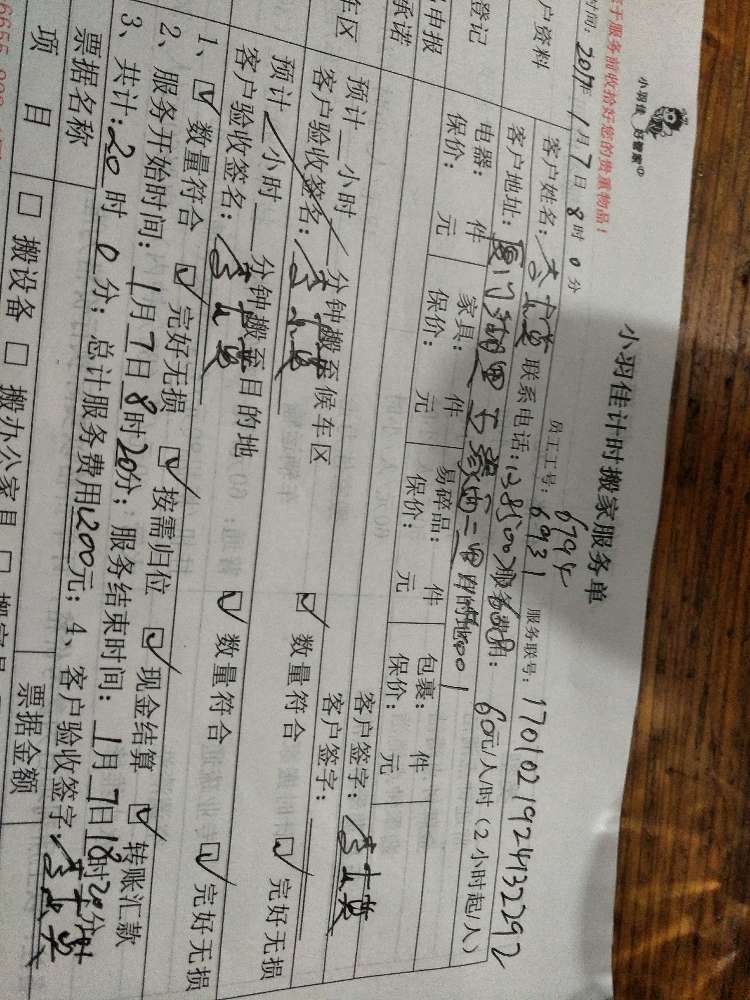 小羽佳 好管家
小羽佳计时搬家服务单
于服务前收拾好您的贵重物品！
员工工号：6794
6931
时间：2017年1月7日8时0分
服务联号：1701021924132292
户资料
客户姓名： 联系电话： 服务费用：60元/人/时（2小时起/人）
客户地址： 目的地
登记
电器： 件 家具： 件 易碎品： 件 包裹： 件
保价： 元 保价： 元 保价： 元 保价： 元
申报
承诺
客户签字：
客户签字：
车区
预计 小时 分钟搬至候车区
客户验收签名： 数量符合 完好无损
预计 小时 分钟搬至目的地
客户验收签名： 数量符合 完好无损
1、数量符合 完好无损 按需归位 现金结算 转账汇款
2、服务开始时间：1月7日8时20分；服务结束时间：1月7日18时20分
3、共计：20时0分；总计服务费用1200元；4、客户验收签字：
票据名称 票据金额
项目 搬设备 搬办公家具